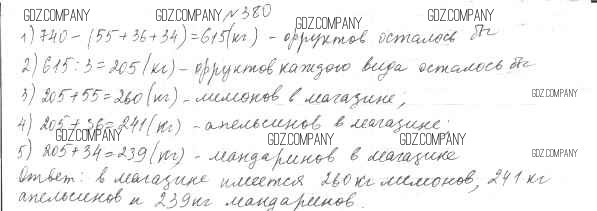 GDZ.COMPANY №380 GDZ.COMPANY GDZ.COMPANY
1) 740 - (55+36+34)=615(кг) - фруктов осталось бы
2) 615:3=205 (кг) - фруктов каждого вида осталось бы
3) 205+55=260(кг) - лимонов в магазине; GDZ.COMPANY
4) 205+36=241(кг) - апельсинов в магазине;
GDZ.COMPANY GDZ.COMPANY GDZ.COMPANY
5) 205+34=239(кг) - мандаринов в магазине GDZ.COMPANY
Ответ: в магазине имеется 260кг лимонов, 241 кг
апельсинов и 239кг мандаринов.